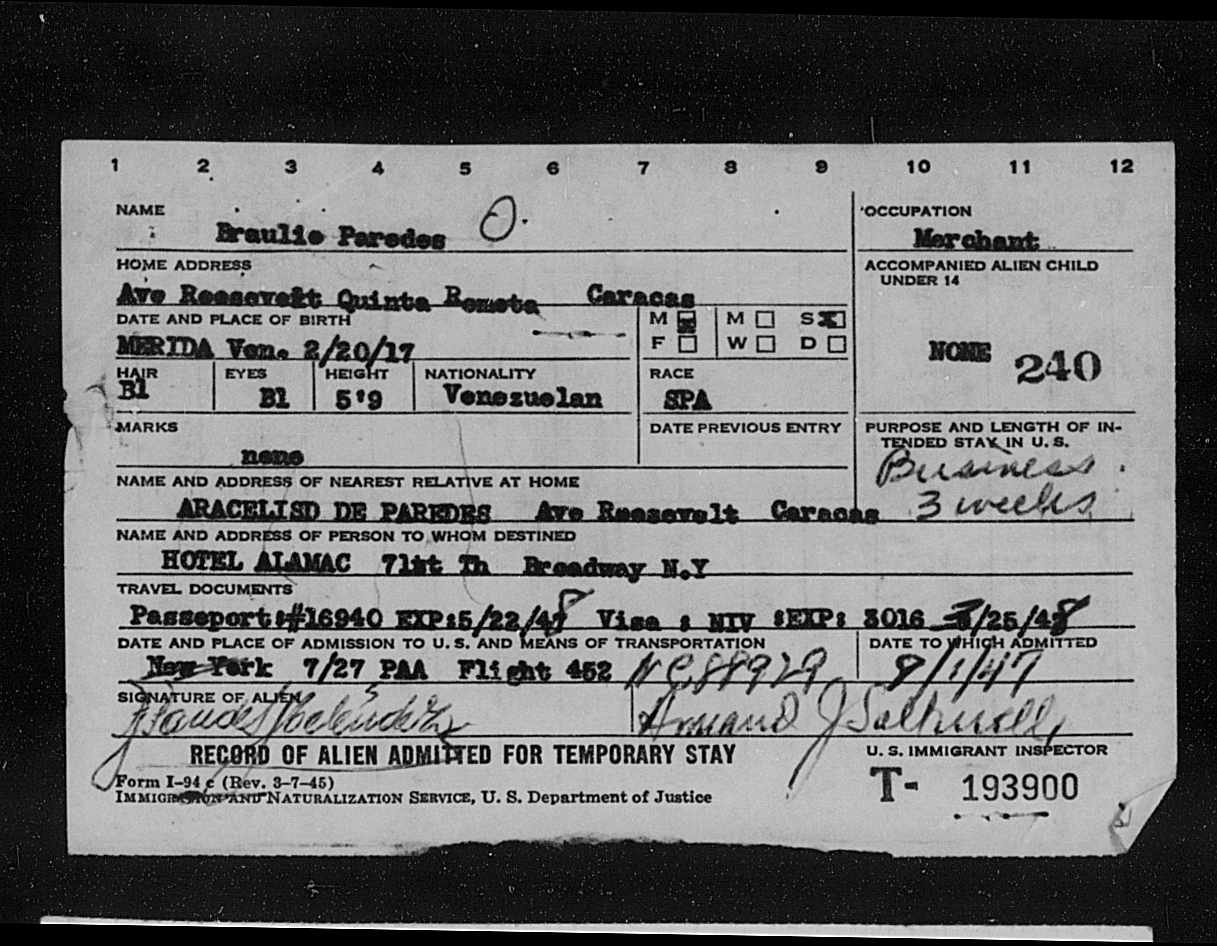 1 2 3 4 5 6 7 8 9 10 11 12
NAME
Braulio Paredes O.
OCCUPATION
Merchant
HOME ADDRESS
Ave Roosevelt Quinta Remeta Caracas
ACCOMPANIED ALIEN CHILD
UNDER 14
NONE 240
DATE AND PLACE OF BIRTH
MERIDA Ven. 2/20/17
M M S
F W D
HAIR EYES HEIGHT NATIONALITY RACE
Bl Bl 5'9 Venezuelan SPA
MARKS
none
DATE PREVIOUS ENTRY
PURPOSE AND LENGTH OF IN-
TENDED STAY IN U. S.
Business.
3 weeks
NAME AND ADDRESS OF NEAREST RELATIVE AT HOME
ARACELISD DE PAREDES Ave Roosevelt Caracas
NAME AND ADDRESS OF PERSON TO WHOM DESTINED
HOTEL ALAMAC 71st Th Broadway N.Y
TRAVEL DOCUMENTS
Passeport:#16940 EXP:5/22/48 Visa : NIV :EXP: 3016 3/25/48
DATE AND PLACE OF ADMISSION TO U. S. AND MEANS OF TRANSPORTATION
New York 7/27 PAA Flight 452 NC88929
DATE TO WHICH ADMITTED
9/1/47
SIGNATURE OF ALIEN
Armand J
RECORD OF ALIEN ADMITTED FOR TEMPORARY STAY
U. S. IMMIGRANT INSPECTOR
Form I-94 c (Rev. 3-7-45)
IMMIGRATION AND NATURALIZATION SERVICE, U. S. Department of Justice
T- 193900